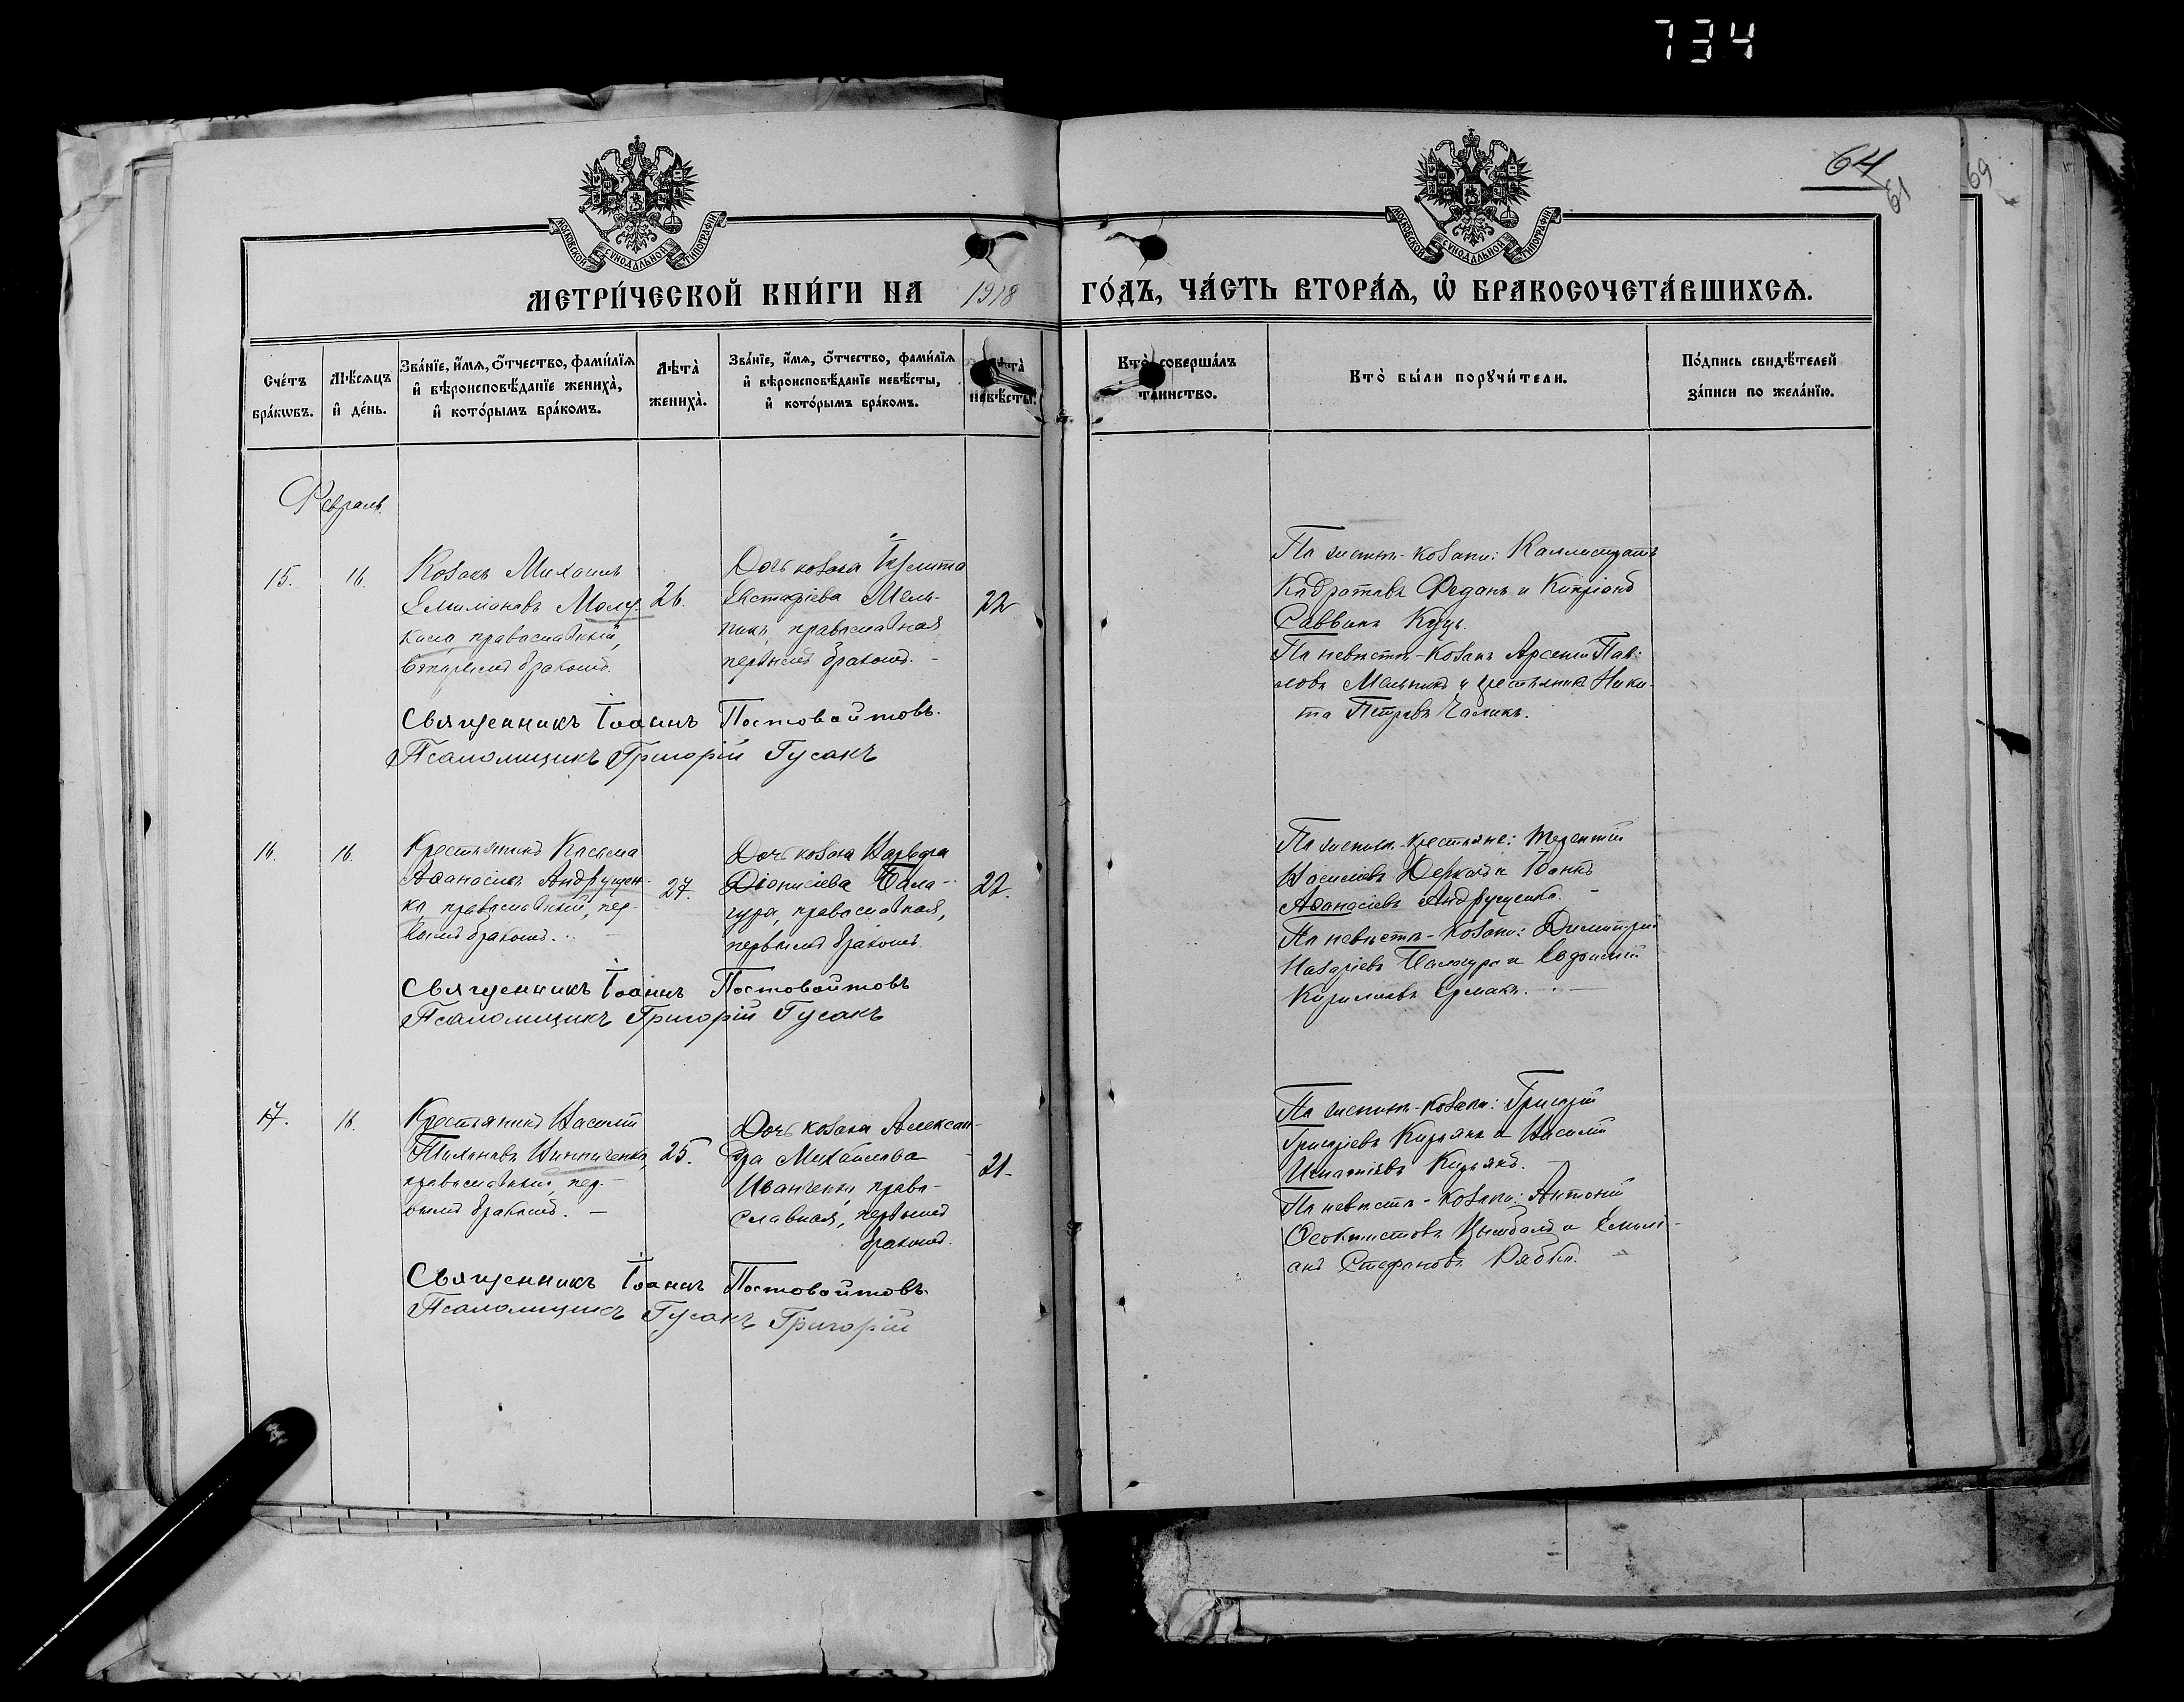 734
64
61
69
МОСКОВСКОЙ СѴНОДАЛЬНОЙ ТИПОГРАФІИ
МОСКОВСКОЙ СѴНОДАЛЬНОЙ ТИПОГРАФІИ
МЕТРИ́ЧЕСКОЙ КНИ́ГИ НА 1918 ГО́ДЪ, ЧА́СТЬ ВТОРА́Ѧ, Ѡ҆ БРАКОСОЧЕТА́ВШИХСѦ.
Сче́тъ бра́кѡвъ.
Мѣ́сѧцъ и҆ де́нь.
Зва́нїе, и҆́мѧ, ѻ҆́тчество, фами́лїѧ и҆ вѣроисповѣ́данїе жениха̀, и҆ кото́рымъ бра́комъ.
Лѣта̀ жениха̀.
Зва́нїе, и҆́мѧ, ѻ҆́тчество, фами́лїѧ и҆ вѣроисповѣ́данїе невѣ́сты, и҆ кото́рымъ бра́комъ.
Лѣта̀ невѣ́сты.
Кто̀ соверша́лъ та́инство.
Кто̀ бы́ли порꙋчи́тели.
По́дпись свидѣ́телей за́писи по жела́нїю.
Февраль.
15.
16.
Козакъ Михаилъ
Емиліановъ
православный,
вторымъ бракомъ.
26.
Дочь козака
Евстафіева Мель-
никъ, православная,
первымъ бракомъ.
22
По женихѣ - козаки: Каллистратъ
Кодратовъ Феданъ и Кипріанъ
Саввинъ Куцъ.
По невѣстѣ - козакъ Арсеній Пав-
ловъ Мельникъ и крестьянинъ Ники-
та Петровъ Чаликъ.
Священникъ Іоаннъ Постовойтовъ.
Псаломщикъ Григорій Гусакъ
16.
16.
Крестьянинъ Косьма
Аѳанасіевъ Андрущен-
ко, православный, пер-
вымъ бракомъ.
27.
Дочь козака Варвара
Діонисіева Бала-
гура, православная,
первымъ бракомъ.
22.
По женихѣ - крестьяне: Терентій
Василіевъ Деркачъ и Іоаннъ
Аѳанасіевъ Андрущенко.
По невѣстѣ - козаки: Димитрій
Назаріевъ Балагура и Евдокимъ
Кирилловъ Ермакъ.
Священникъ Іоаннъ Постовойтовъ
Псаломщикъ Григорій Гусакъ
17.
16.
Крестьянинъ Василій
Тихоновъ Винниченко,
православный, пер-
вымъ бракомъ.
25.
Дочь козака Алексан-
дра Михайлова
Иванченко, право-
славная, первымъ
бракомъ.
21.
По женихѣ - козаки: Григорій
Григоріевъ Кирьякъ и Василій
Игнатіевъ Кирьякъ.
По невѣстѣ - козаки: Антоній
Ѳеоктистовъ Цымбалъ и Емилі-
анъ Стефановъ Рябко.
Священникъ Іоаннъ Постовойтовъ.
Псаломщикъ Гусакъ Григорій